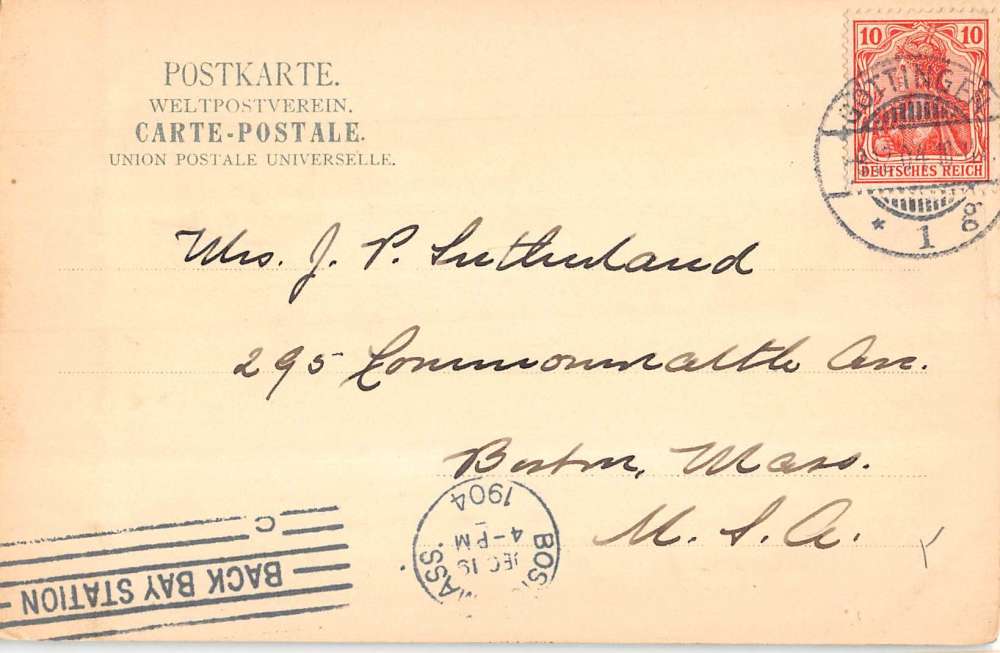 POSTKARTE.
WELTPOSTVEREIN.
CARTE-POSTALE.
UNION POSTALE UNIVERSELLE.
10 10
DEUTSCHES REICH
GÖTTINGEN
* 1
Mrs. J. P. Sutherland
295 Commonwealth Av.
Boston, Mass.
U. S. A.
BOS
ASS.
DEC 19
4-PM
1904
BACK BAY STATION
C